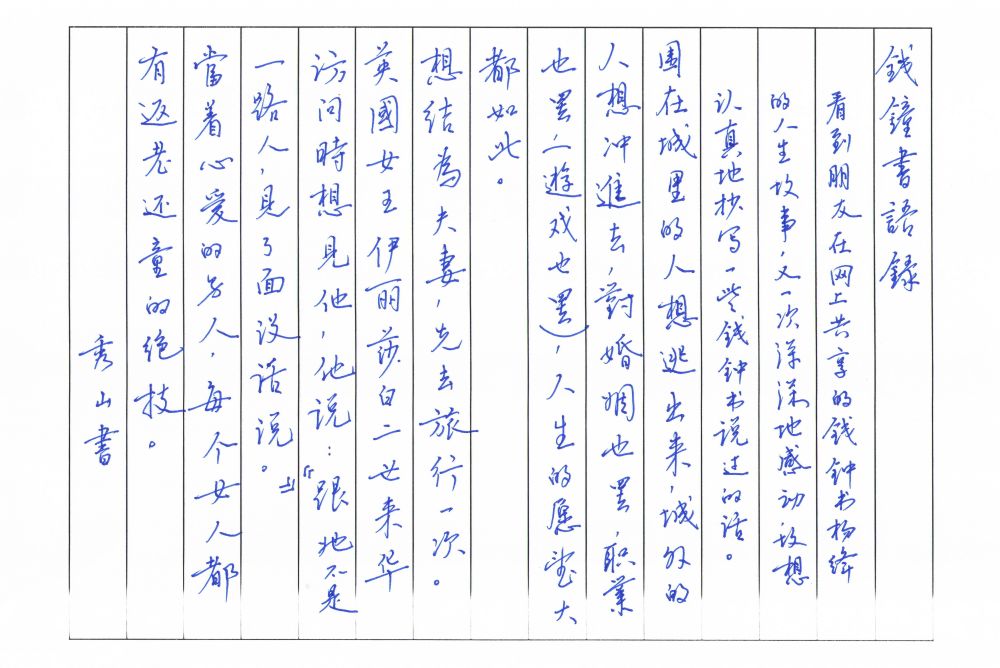 錢鐘書語録
看到朋友在网上共享的錢钟书杨绛
的人生故事，又一次深深地感动，故想
认真地抄写一些錢钟书说过的话。
围在城里的人想逃出来，城外的
人想冲進去，對婚姻也罢，职業
也罢（遊戏也罢），人生的愿望大
都如此。
想结為夫妻，先去旅行一次。
英國女王伊丽莎白二世来华
访问時想見他，他说：“跟她不是
一路人，見了面没话说。”
當着心爱的男人，每个女人都
有返老还童的绝技。
秀山書